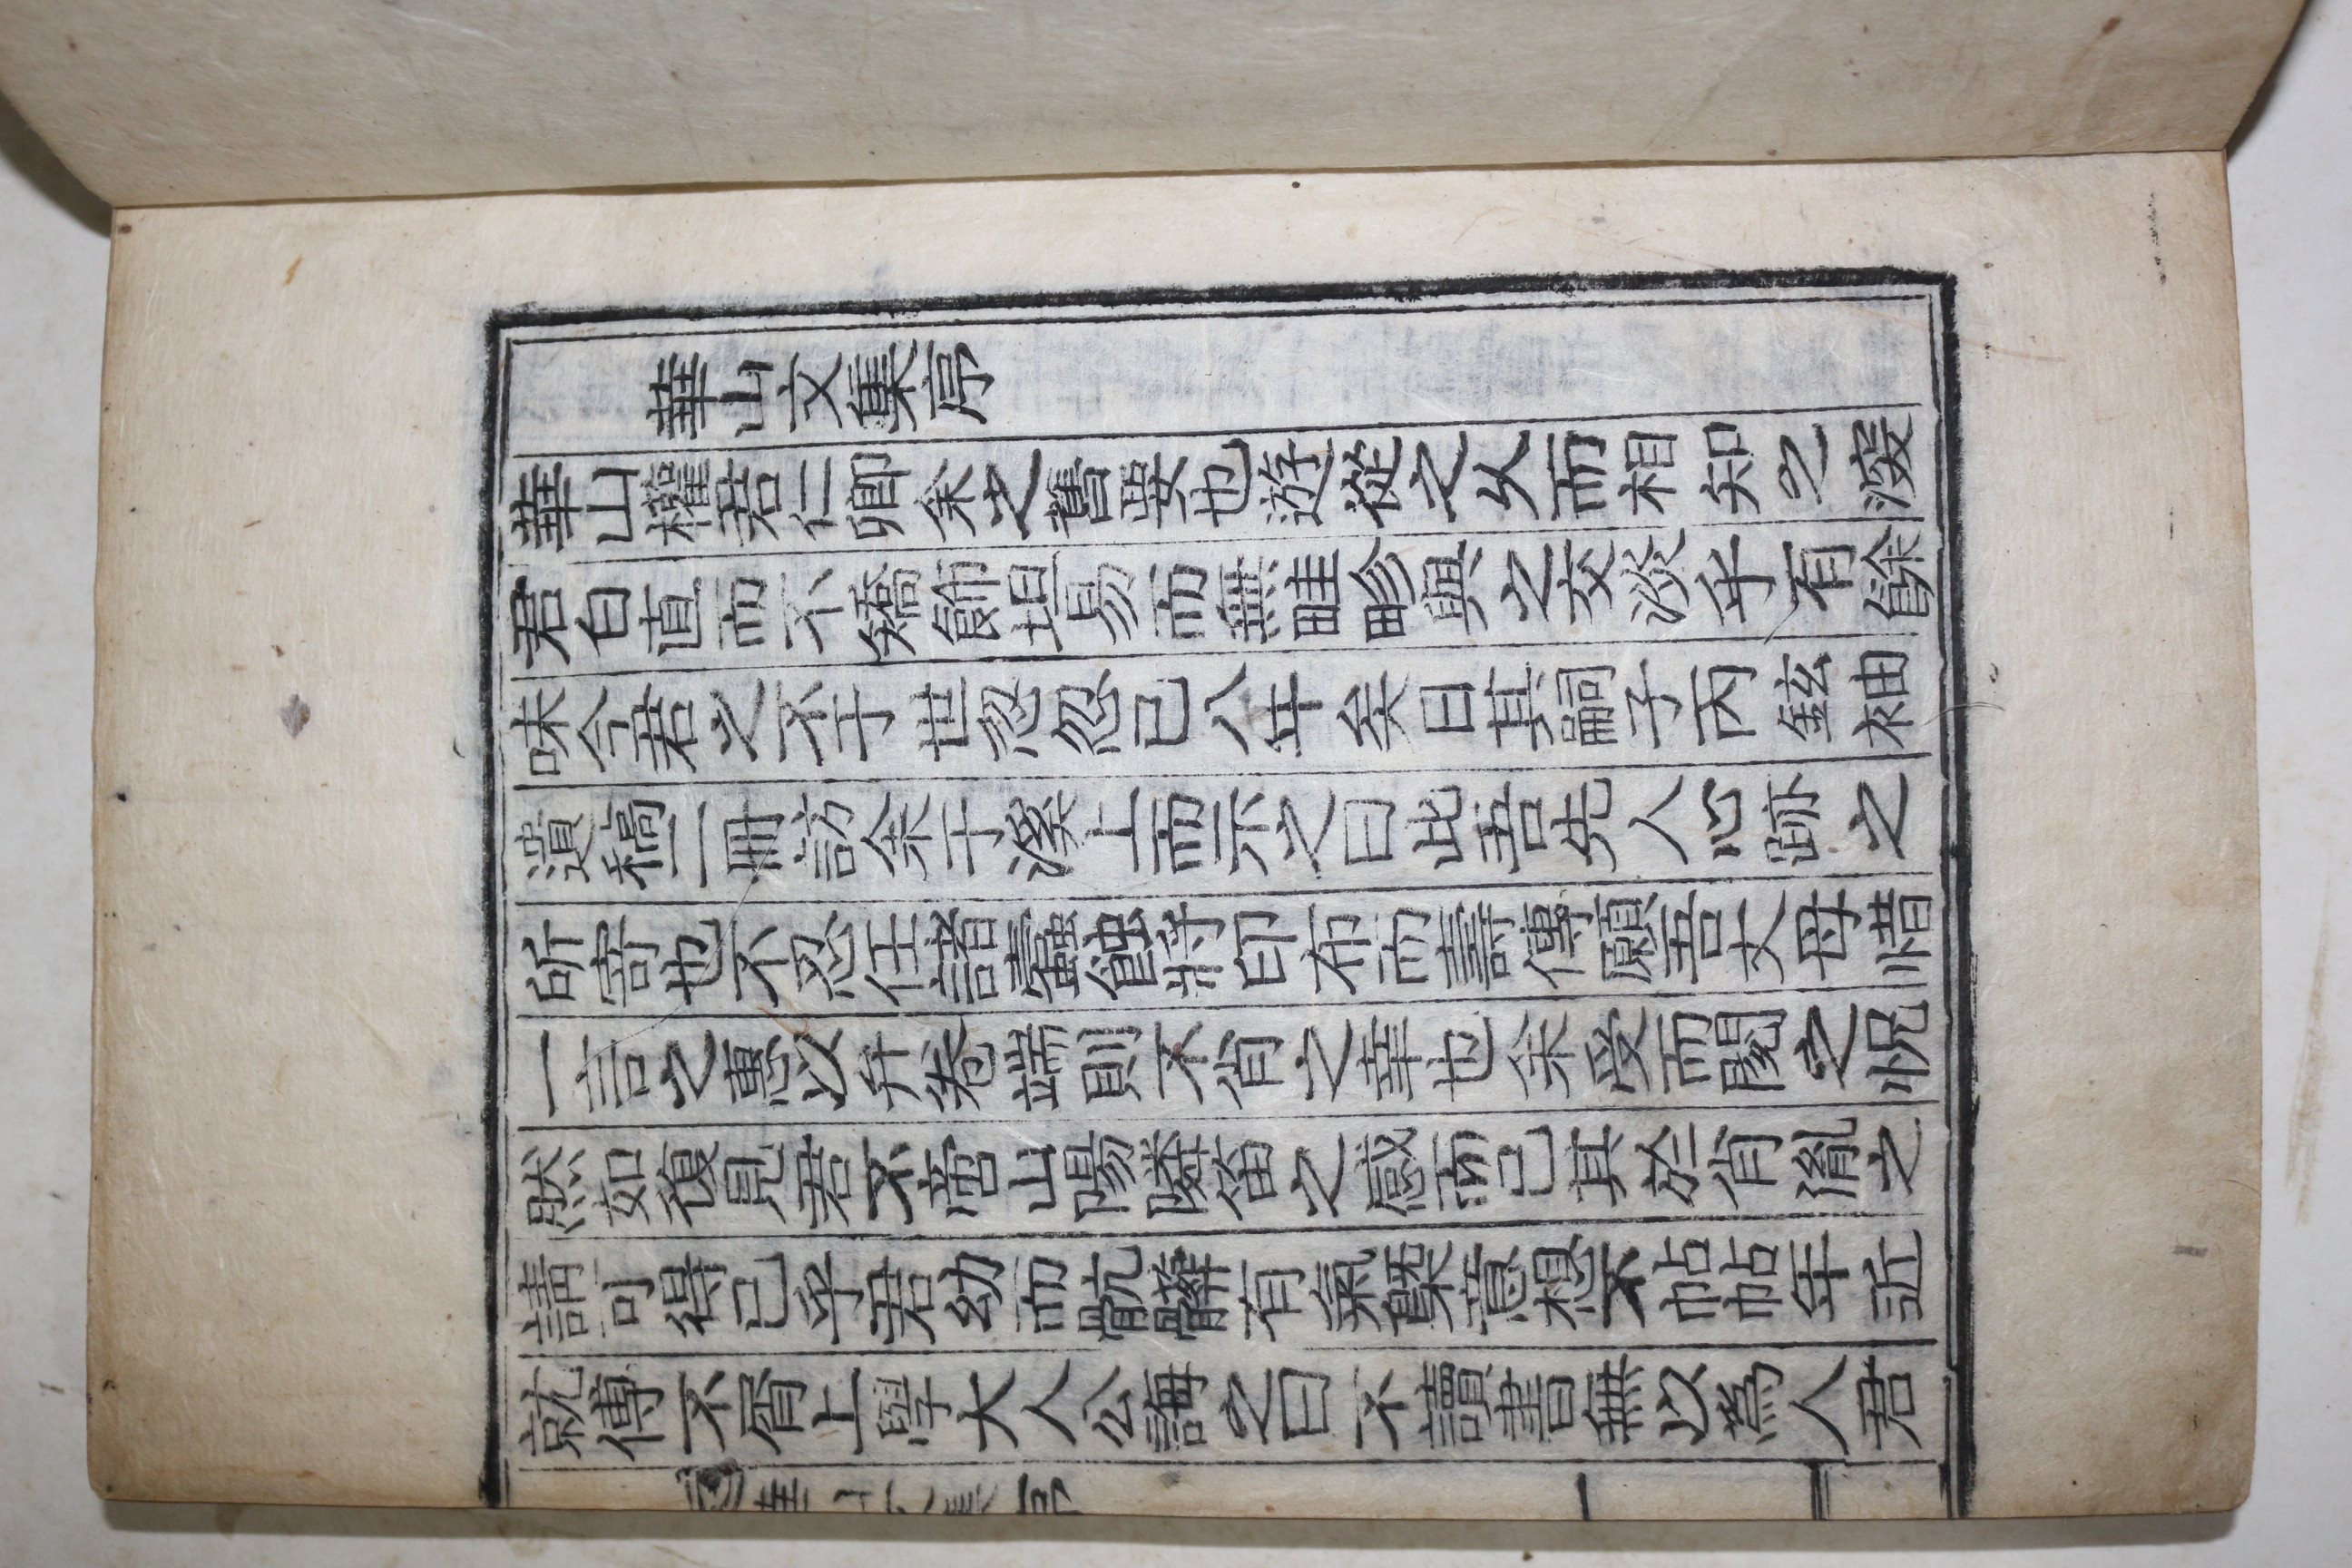 華山文集序
華山權君仁卿余之舊要也遊從之久而相知之深
君白直而不矯飾坦易而無畦畛與之交淡乎有餘
味今君之不于世忽忽已八年矣日其嗣子丙鉉袖
遺稿二冊訪余于溪上而示之曰此吾先人心跡之
所寄也不忍任諸蠹蝕將印布而壽傳願吾丈毋惜
一言之惠以弁卷端則不肖之幸也余受而閱之怳
然如復見君不啻山陽隣笛之感而已其於肖胤之
請可得已乎君幼而骯髒有氣槩意想不帖帖年近
就傅不屑上學大人公誨之曰不讀書無以爲人君
華山文集序
一